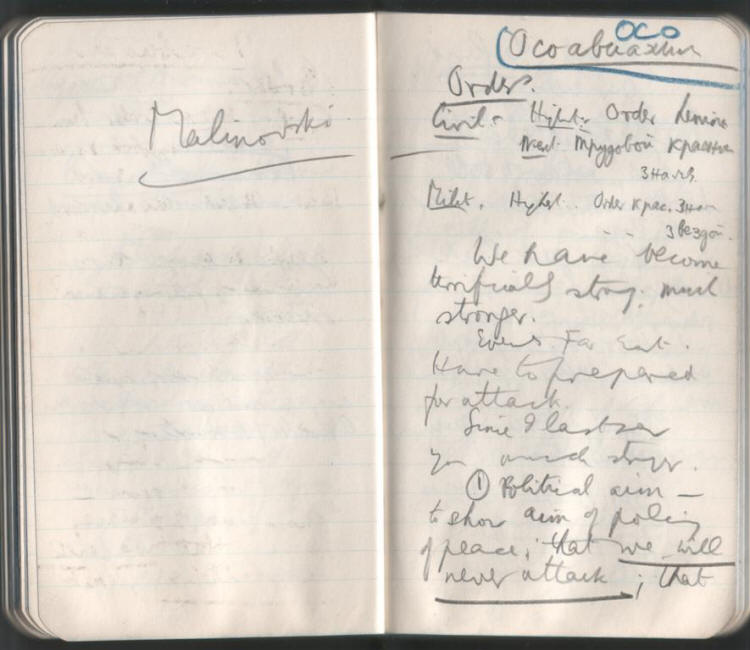 Malinovski
ОСО
Осоавиахим
Orders.
Civil. Highest. Order Lenin
Next. Трудовой красн
знам.
Milit. Highest. Order крас. знам
звездой.
We have become
terrifically strong, much
stronger.
Events. Far East.
Have to prepared
for attack.
Since I last saw
you much stronger.
① Political aim —
to show aim of policy
of peace; that we will
never attack; that